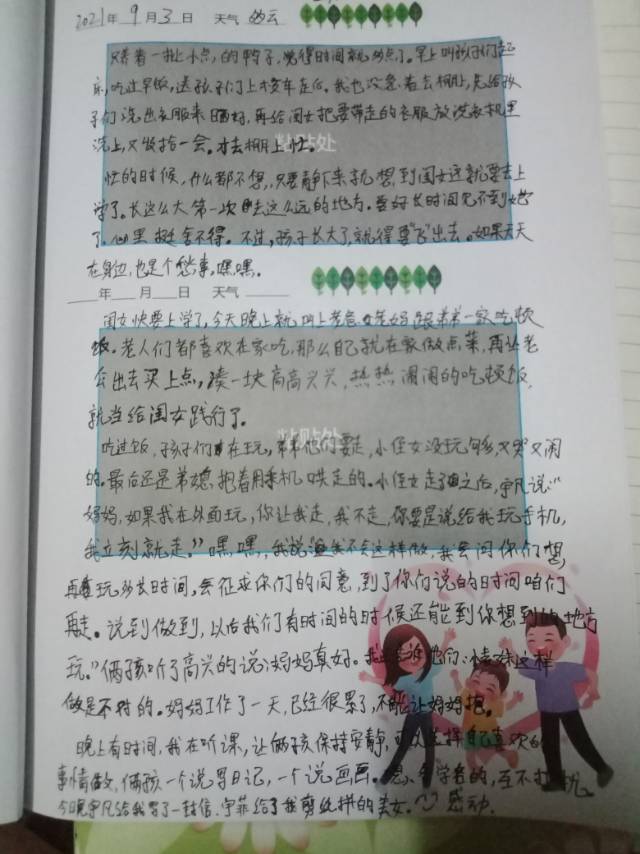 2021年 9月3日 天气 多云
只看着一批小点,的鸭子,觉得时间就多点了。早上叫孩子们起
床,吃过早饭,送孩子们上校车走后。我也没急着去棚上,先给孩
子们洗出衣服来晒好,再给闺女把要带走的衣服放洗衣机里
洗上,又收拾一会。才去棚上忙。
粘贴处
忙的时候,什么都不想,只要静下来就想到闺女这就要去上
学了。长这么大第一次去这么远的地方。要好长时间见不到她
了,心里挺舍不得。不过,孩子长大了,就得要"飞"出去。如果天天
在身边,也是个愁事,嘿嘿。
年 月 日 天气
闺女快要上学了,今天晚上就叫上老爸、老妈跟弟弟一家吃顿
饭。老人们都喜欢在家吃,那么自己就在家做点菜,再让老
公出去买上点,凑一块高高兴兴,热热闹闹的吃顿饭,
就当给闺女践行了。
粘贴处
吃过饭,孩子们在玩,弟弟他们要走,小侄女没玩够,又哭又闹
的。最后还是弟媳抱着用手机哄走的。小侄女走了之后,宇凡说:"
妈妈,如果我在外面玩,你让我走,我不走,你要是说给我玩手机,
我立刻就走。"嘿嘿,我说我不会这样做,我会问你们想,
再玩多长时间,会征求你们的同意,到了你们说的时间咱们
再走。说到做到,以后我们有时间的时候还能到你想到的地方
玩。"俩孩听了高兴的说:妈妈真好。我告诉他们:妹妹这样
做是不对的。妈妈工作了一天,已经很累了,不能让妈妈抱。
晚上有时间,我在听课,让俩孩保持安静,可以选择自己喜欢的
事情做,俩孩一个说写日记,一个说画画。各写各的,互不打扰。
今晚宇凡给我写了一封信,宇菲给了我剪纸拼的美女。感动.